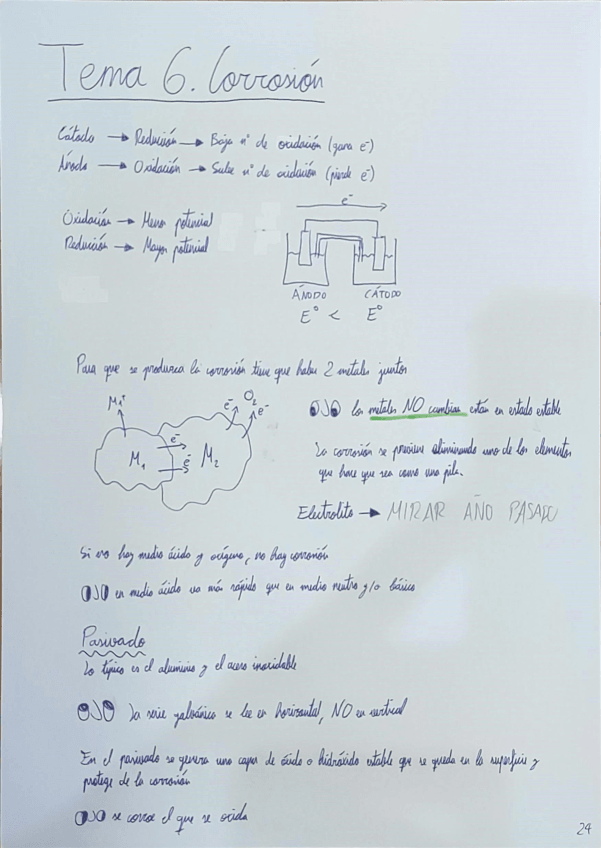 Tema 6. Corrosión
Cátodo → Reducción → Baja nº de oxidación (gana e⁻)
Ánodo → Oxidación → Sube nº de oxidación (pierde e⁻)
Oxidación → Menor potencial
Reducción → Mayor potencial
e⁻
ÁNODO CÁTODO
E° < E°
Para que se produzca la corrosión tiene que haber 2 metales juntos
M₁⁺ e⁻ O₂ e⁻
M₁ e⁻ e⁻ M₂
OJO los metales NO cambian están en estado estable
La corrosión se previene eliminando uno de los elementos
que hace que sea como una pila.
Electrolito → MIRAR AÑO PASADO
Si no hay medio ácido y oxígeno, no hay corrosión
OJO en medio ácido va más rápido que en medio neutro y/o básico
Pasivado
Lo típico es el aluminio y el acero inoxidable
OJO La serie galvánica se lee en horizontal, NO en vertical
En el pasivado se genera una capa de óxido o hidróxido estable que se queda en la superficie y
protege de la corrosión
OJO se corroe el que se oxida
24